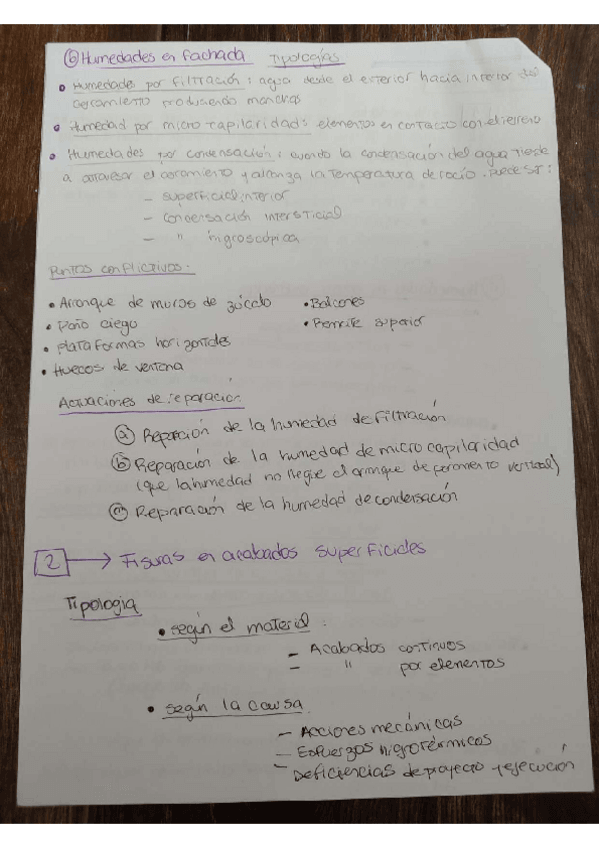 ⑥ Humedades en fachada Tipologías
• Humedades por filtración: agua desde el exterior hacia interior del
cerramiento produciendo manchas
• Humedad por micro capilaridad: elementos en contacto con el terreno
• Humedades por condensación: cuando la condensación del agua tiende
a atravesar el cerramiento y alcanza la temperatura de rocío. Puede ser:
- superficial interior
- condensación intersticial
- " higroscópica
Puntos conflictivos:
• Arranque de muros de zócalo
• Paño ciego
• Plataformas horizontales
• Huecos de ventana
• Balcones
• Remate superior
Actuaciones de reparación
ⓐ Reparación de la humedad de filtración
ⓑ Reparación de la humedad de micro capilaridad
(que la humedad no llegue el arranque de paramento vertical)
Reparación de la humedad de condensación
2 → Fisuras en acabados superficiales
Tipologia
• según el material:
- Acabados continuos
- " por elementos
• según la causa
- Acciones mecánicas
- Esfuerzos higrotérmicos
- Deficiencias de proyecto y ejecución